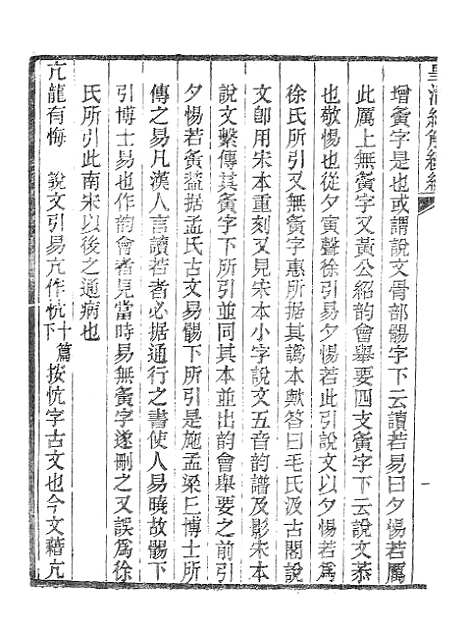 皇清經解續編
增夤字是也或謂說文骨部䯜字下云讀若易曰夕惕若厲
此厲上無夤字又黃公紹韵會舉要四支夤字下云說文㳟
也敬惕也從夕寅聲徐引易夕惕若此引說文以夕惕若爲
徐氏所引又無夤字惠所据其譌本歟答曰毛氏汲古閣說
文卽用宋本重刻又見宋本小字說文五音韵譜及影宋本
說文繫傳其夤字下所引並同其本並出韵會舉要之前引
夕惕若夤葢据孟氏古文易䯜下所引是施孟梁丘博士所
傳之易凡漢人言讀若者必据通行之書使人易曉故䯜下
引博士易也作韵會者見當時易無夤字遂刪之又誤爲徐
氏所引此南宋以後之通病也
亢龍有悔　說文引易亢作忼十篇下按忼字古文也今文藉亢